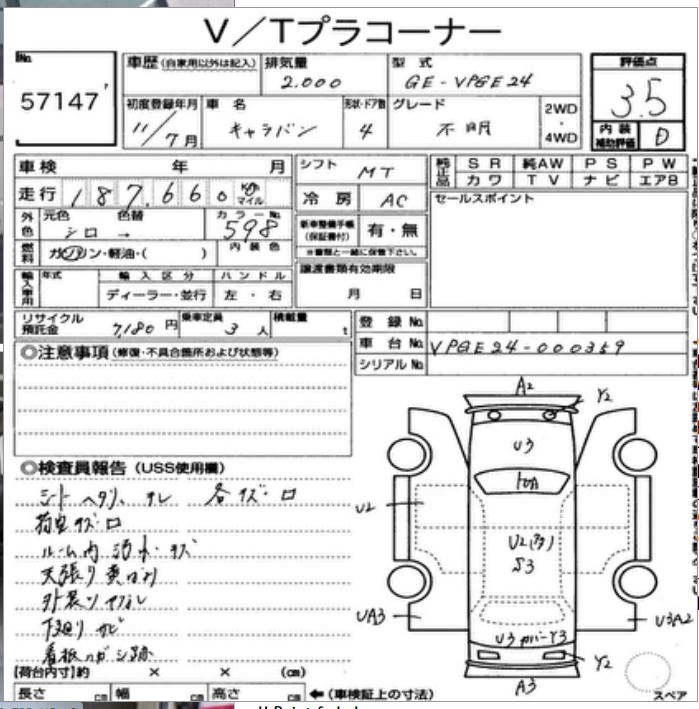 V／Tプラコーナー
No.
57147
車歴（自家用以外は記入）
排気量
2.000
型式
GE-VPGE24
評価点
3.5
初度登録年月
11/7月
車名
キャラバン
形状・ドア数
4
グレード
不明
2WD・4WD
内装補助評価
D
車検 年 月
シフト
MT
純正品
SR 純AW PS PW
カワ TV ナビ エアB
走行 187,660 km マイル
冷房
AC
セールスポイント
外色
元色 色替
シロ →
カラーNo.
598
新車整備手帳（保証書付）
有・無
※書類と一緒に保管下さい。
燃料
ガソリン・軽油・（ ）
内装色
譲渡書類有効期限
月 日
輸入車用
年式
輸入区分
ディーラー・並行
ハンドル
左・右
リサイクル預託金
7,180円
乗車定員
3人
積載量
t
登録No.
車台No.
VPGE24-000359
シリアルNo.
◎注意事項（修復・不具合箇所および状態等）
◎検査員報告（USS使用欄）
シート ヘタリ、スレ 各キズ・ロ
荷台キズ・ロ
ルーム内 汚れ・キズ
天張り
下廻り サビ
看板ハガシ跡
【荷台内寸】約 × × （cm）
長さ cm 幅 cm 高さ cm
←（車検証上の寸法）
A2
Y2
U3
U2
U2(多)
S3
UA3
U3A2
U3 カバーY3
Y2
A3
スペア